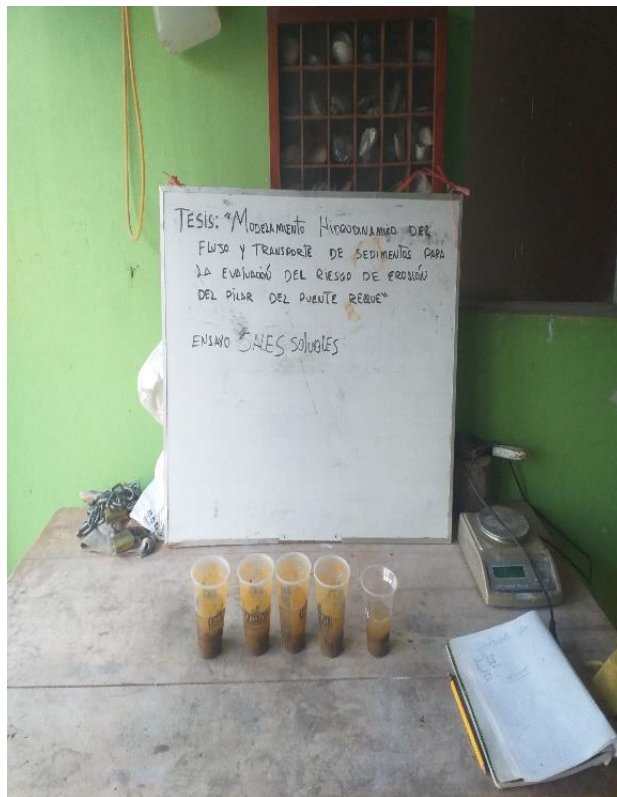 TESIS: "MODELAMIENTO HIDRODINAMICO DEL
FLUJO Y TRANSPORTE DE SEDIMENTOS PARA
LA EVALUACIÓN DEL RIESGO DE EROSIÓN
DEL PILAR DEL PUENTE REQUE"
ENSAYO SALES SOLUBLES